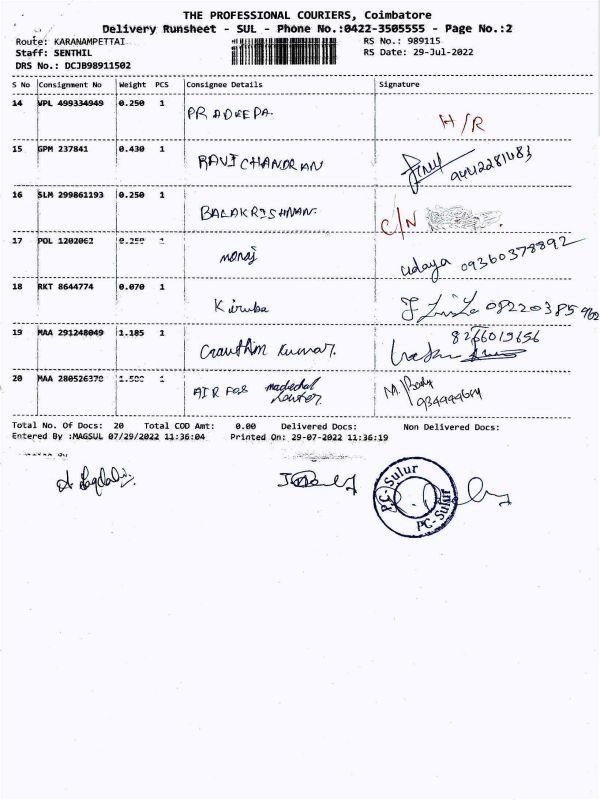 THE PROFESSIONAL COURIERS, Coimbatore
Delivery Runsheet - SUL - Phone No.:0422-3505555 - Page No.:2
Route: KARANAMPETTAI RS No.: 989115
Staff: SENTHIL RS Date: 29-Jul-2022
DRS No.: DCJB98911502
S No Consignment No Weight PCS Consignee Details Signature
14 WPL 499334949 0.250 1 PRADEEPA H/R
15 GPM 237841 0.430 1 RAVICHANDRAN
16 SLM 299861193 0.250 1 BALAKRISHNAN. C/N
17 POL 1202062 0.250 1 manoj udaya 09360378892
18 RKT 8644774 0.070 1 Kiruba
19 MAA 291248049 1.185 1 Kumar. 8266019656
20 MAA 280526378 1 AIR FOR
Total No. Of Docs: 20 Total COD Amt: 0.00 Delivered Docs: Non Delivered Docs:
Entered By :MAGSUL 07/29/2022 11:36:04 Printed On: 29-07-2022 11:36:19
PC-Sulur
PC-Sulur